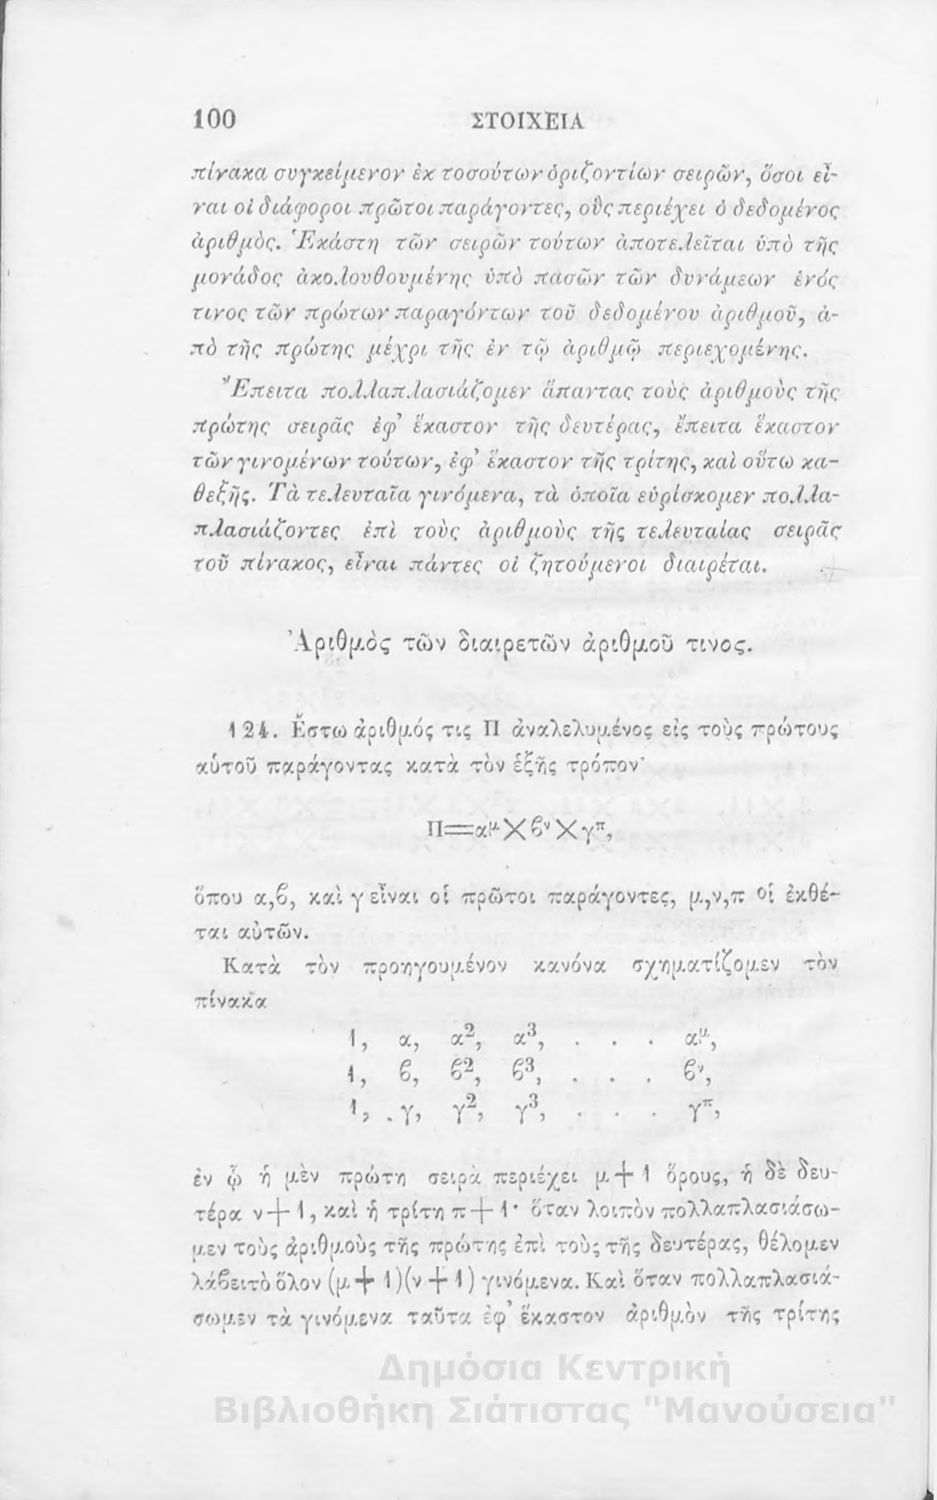 100 ΣΤΟΙΧΕΙΑ
πίνακα συγκείμενον ἐκ τοσούτων ὁριζοντίων σειρῶν, ὅσοι εἶ-
ναι οἱ διάφοροι πρῶτοι παράγοντες, οὓς περιέχει ὁ δεδομένος
ἀριθμός. Ἑκάστη τῶν σειρῶν τούτων ἀποτελεῖται ὑπὸ τῆς
μονάδος ἀκολουθουμένης ὑπὸ πασῶν τῶν δυνάμεων ἑνός
τινος τῶν πρώτων παραγόντων τοῦ δεδομένου ἀριθμοῦ, ἀ-
πὸ τῆς πρώτης μέχρι τῆς ἐν τῷ ἀριθμῷ περιεχομένης.
Ἔπειτα πολλαπλασιάζομεν ἅπαντας τοὺς ἀριθμοὺς τῆς
πρώτης σειρᾶς ἐφ' ἕκαστον τῆς δευτέρας, ἔπειτα ἕκαστον
τῶν γινομένων τούτων, ἐφ' ἕκαστον τῆς τρίτης, καὶ οὕτω κα-
θεξῆς. Τὰ τελευταῖα γινόμενα, τὰ ὁποῖα εὑρίσκομεν πολλα-
πλασιάζοντες ἐπὶ τοὺς ἀριθμοὺς τῆς τελευταίας σειρᾶς
τοῦ πίνακος, εἶναι πάντες οἱ ζητούμενοι διαιρέται.
Ἀριθμὸς τῶν διαιρετῶν ἀριθμοῦ τινος.
124. Ἔστω ἀριθμός τις Π ἀναλελυμένος εἰς τοὺς πρώτους
αὑτοῦ παράγοντας κατὰ τὸν ἑξῆς τρόπον·
Π=α^μ×ϐ^ν×γ^π,
ὅπου α,ϐ, καὶ γ εἶναι οἱ πρῶτοι παράγοντες, μ,ν,π οἱ ἐκθέ-
ται αὐτῶν.
Κατὰ τὸν προηγουμένον κανόνα σχηματίζομεν τὸν
πίνακα
1, α, α², α³, . . . α^μ,
1, ϐ, ϐ², ϐ³, . . . ϐ^ν,
1, γ, γ², γ³, . . . γ^π,
ἐν ᾧ ἡ μὲν πρώτη σειρὰ περιέχει μ+1 ὅρους, ἡ δὲ δευ-
τέρα ν+1, καὶ ἡ τρίτη π+1· ὅταν λοιπὸν πολλαπλασιάσω-
μεν τοὺς ἀριθμοὺς τῆς πρώτης ἐπὶ τοὺς τῆς δευτέρας, θέλομεν
λάϐει τὸ ὅλον (μ+1)(ν+1) γινόμενα. Καὶ ὅταν πολλαπλασιά-
σωμεν τὰ γινόμενα ταῦτα ἐφ' ἕκαστον ἀριθμὸν τῆς τρίτης
Δημόσια Κεντρική
Βιβλιοθήκη Σιάτιστας "Μανούσεια"